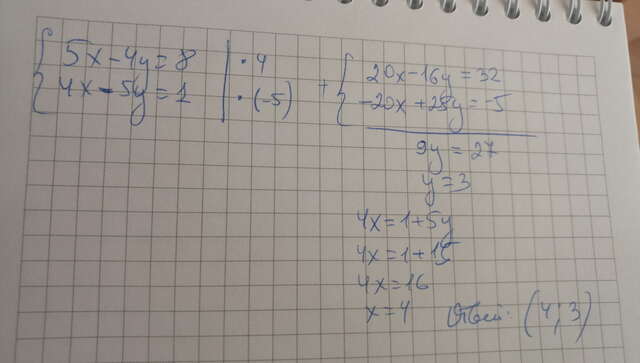 5x-4y=8 | ·4
4x-5y=1 | ·(-5)
+ 20x-16y=32
-20x+25y=-5
9y=27
y=3
4x=1+5y
4x=1+15
4x=16
x=4 Ответ: (4;3)